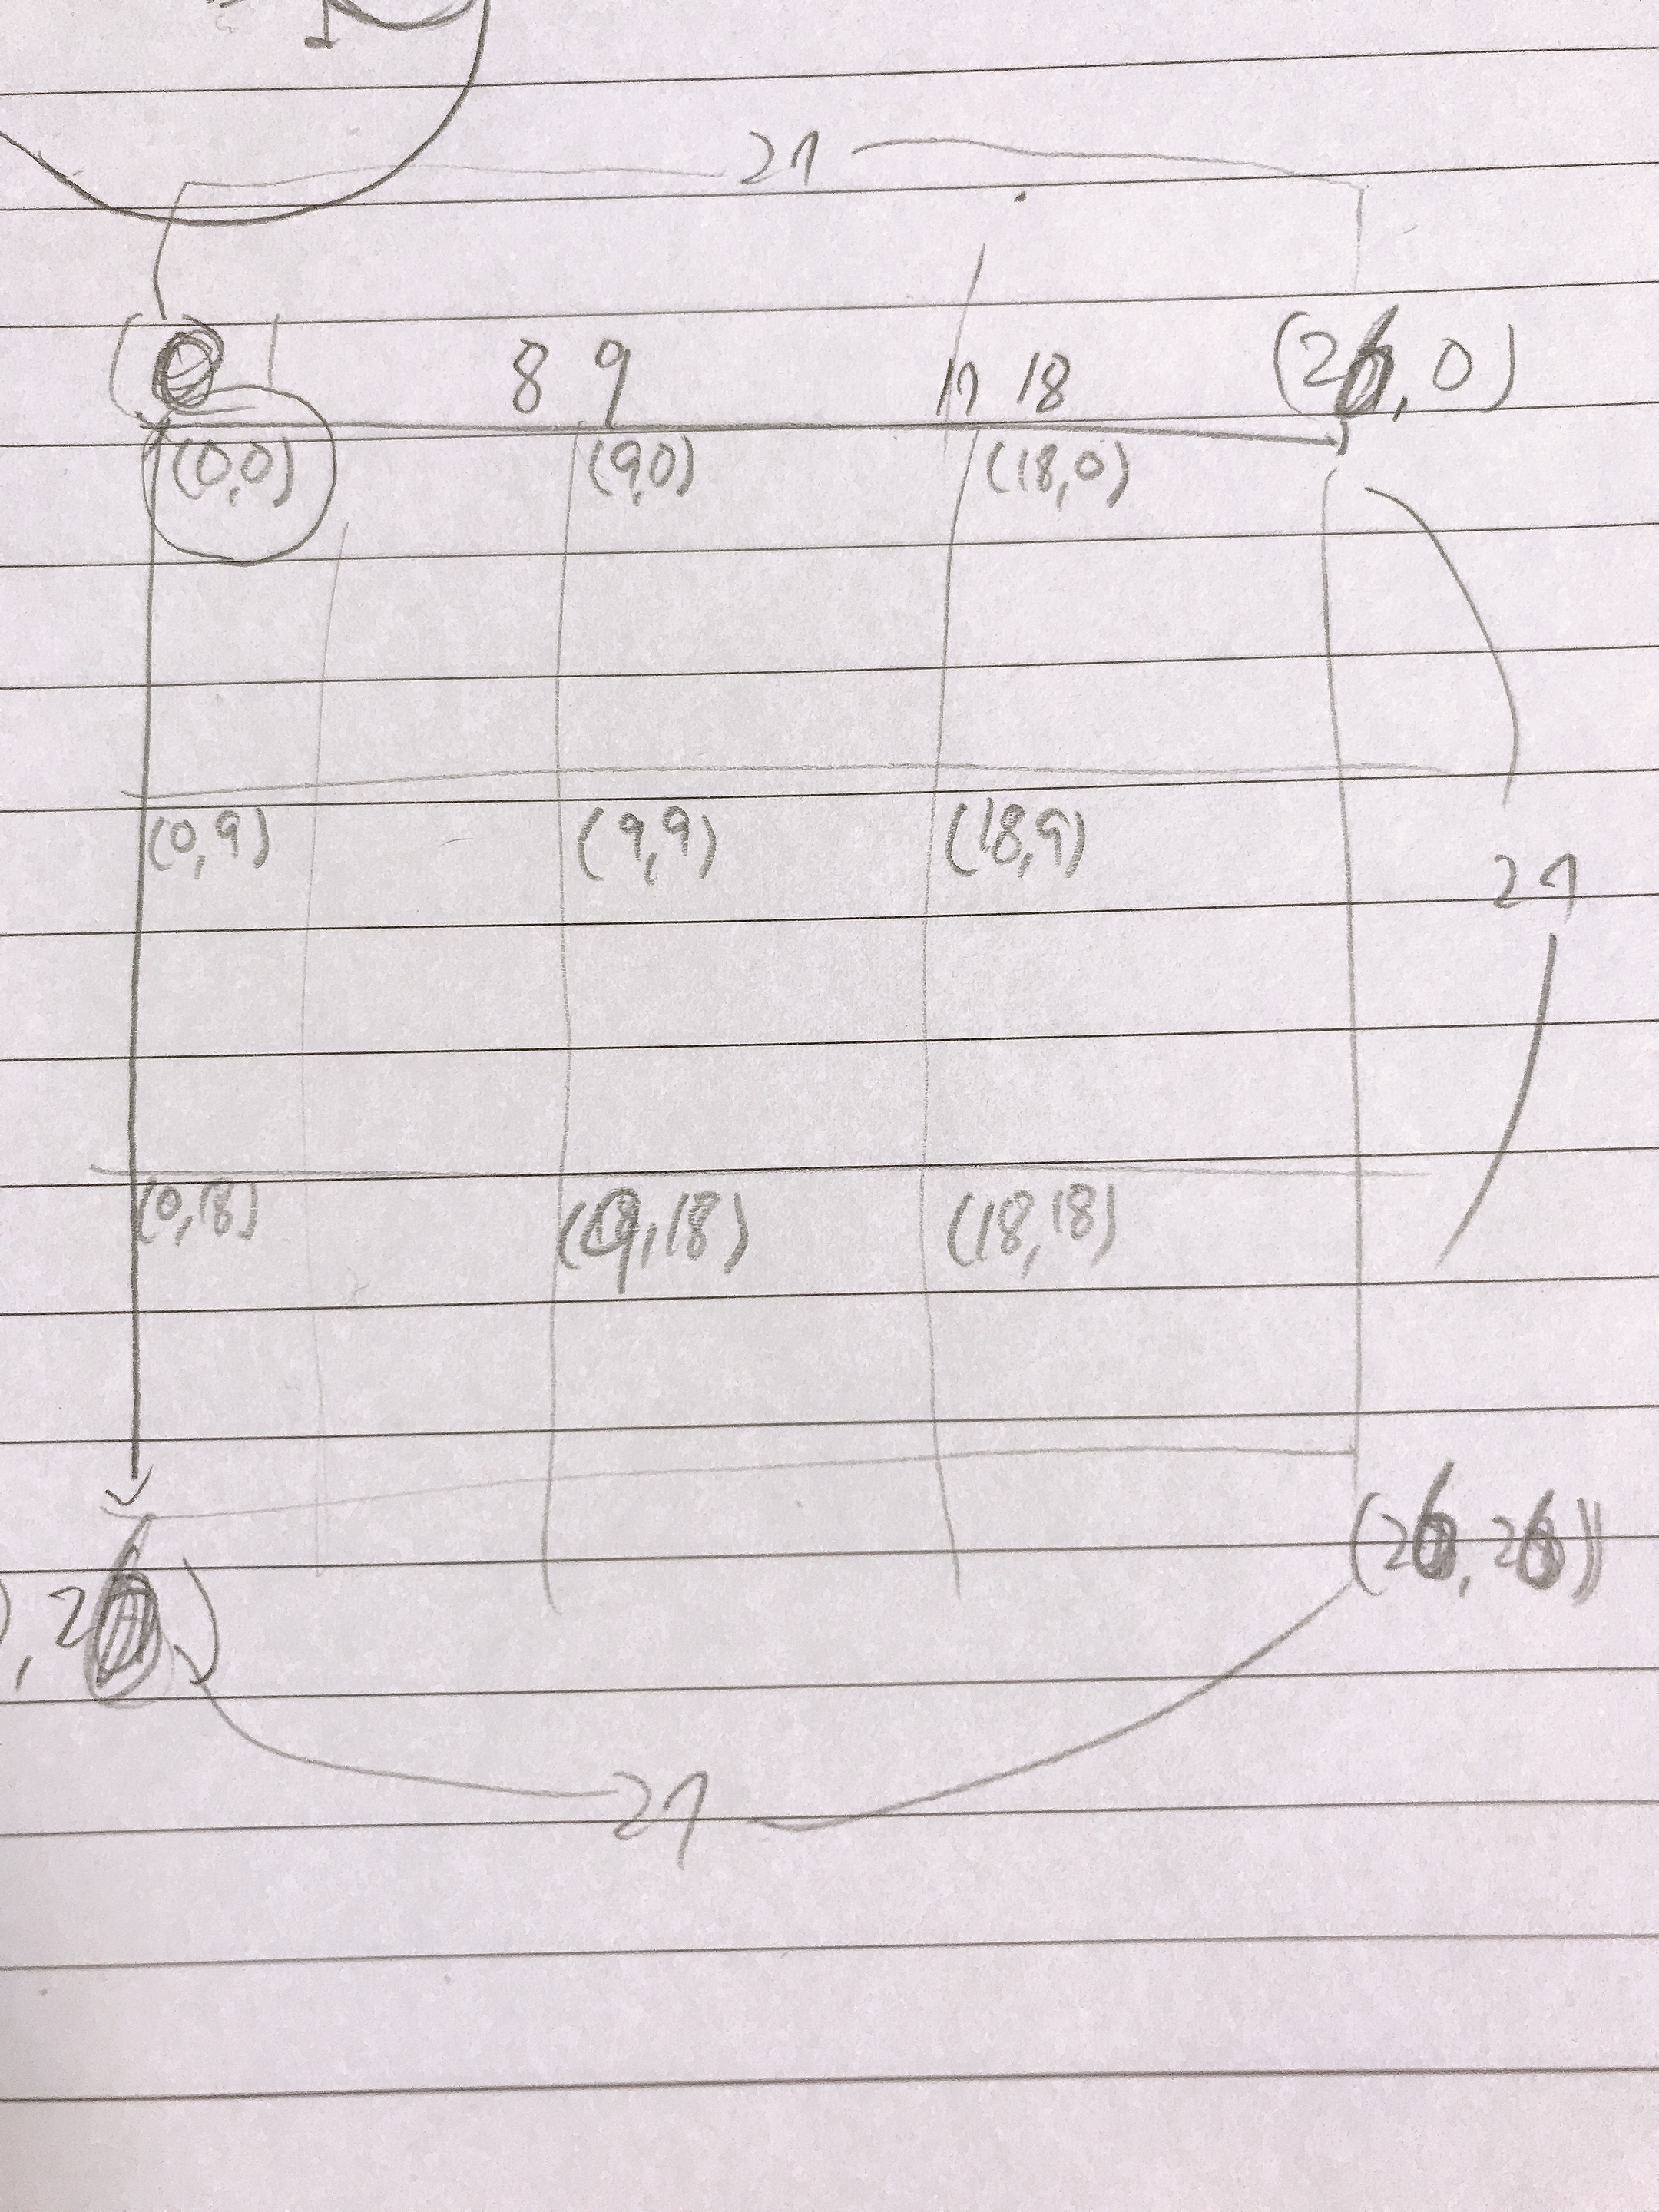 27
0 1 8 9 17 18 (26,0)
(0,0) (9,0) (18,0)
(0,9) (9,9) (18,9)
27
(0,18) (9,18) (18,18)
(26,26)
,26)
27